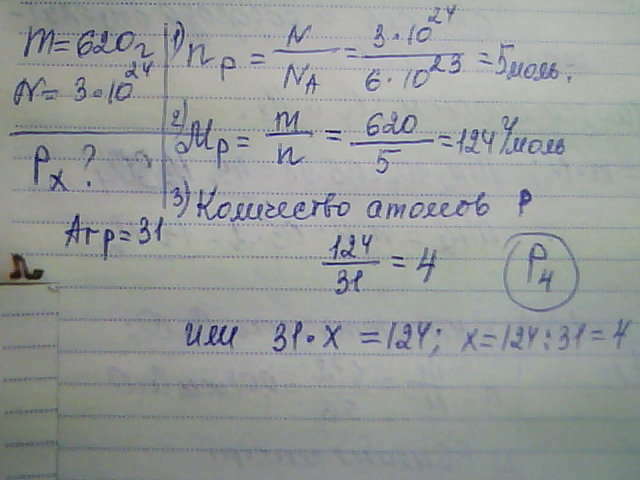 m = 620 г
N = 3·10^24
P_x ?
Ar_P = 31
1) n_P = N / N_A = 3·10^24 / 6·10^23 = 5 моль;
2) M_P = m / n = 620 / 5 = 124 г/моль
3) Количество атомов P
124 / 31 = 4 P_4
или 31·x = 124; x = 124 : 31 = 4